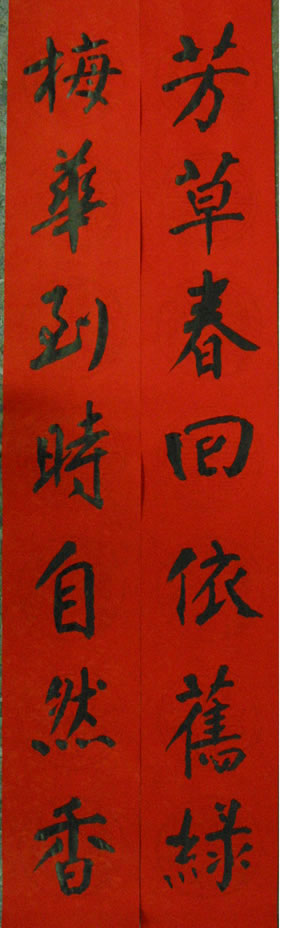 芳草春回依舊緑
梅華到時自然香